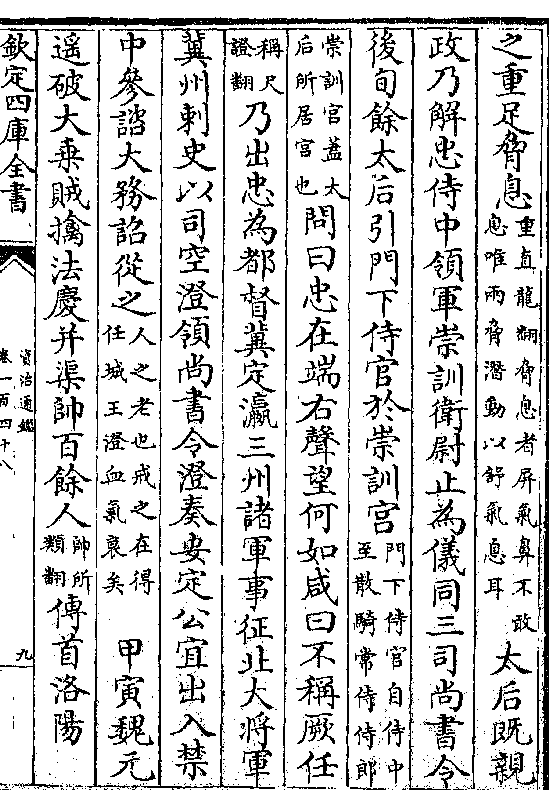 之重足脅息重直龍翻脅息者屏氣鼻不敢息唯兩脅潛動以舒氣息耳太后既親
政乃解忠侍中領軍崇訓衛尉止為儀同三司尚書令
後旬餘太后引門下侍官於崇訓宮門下侍官自侍中至散騎常侍侍郎
崇訓宮蓋太后所居宮也問曰忠在端右聲望何如咸曰不稱厥任
稱尺證翻乃出忠為都督冀定瀛三州諸軍事征北大將軍
冀州刺史以司空澄領尚書令澄奏安定公宜出入禁
中參諮大務詔從之人之老也戒之在得任城王澄血氣衰矣 甲寅魏元
遥破大乗賊擒法慶并渠帥百餘人帥所類翻傳首洛陽
欽定四庫全書
資治通鑑
卷一百四十八
九